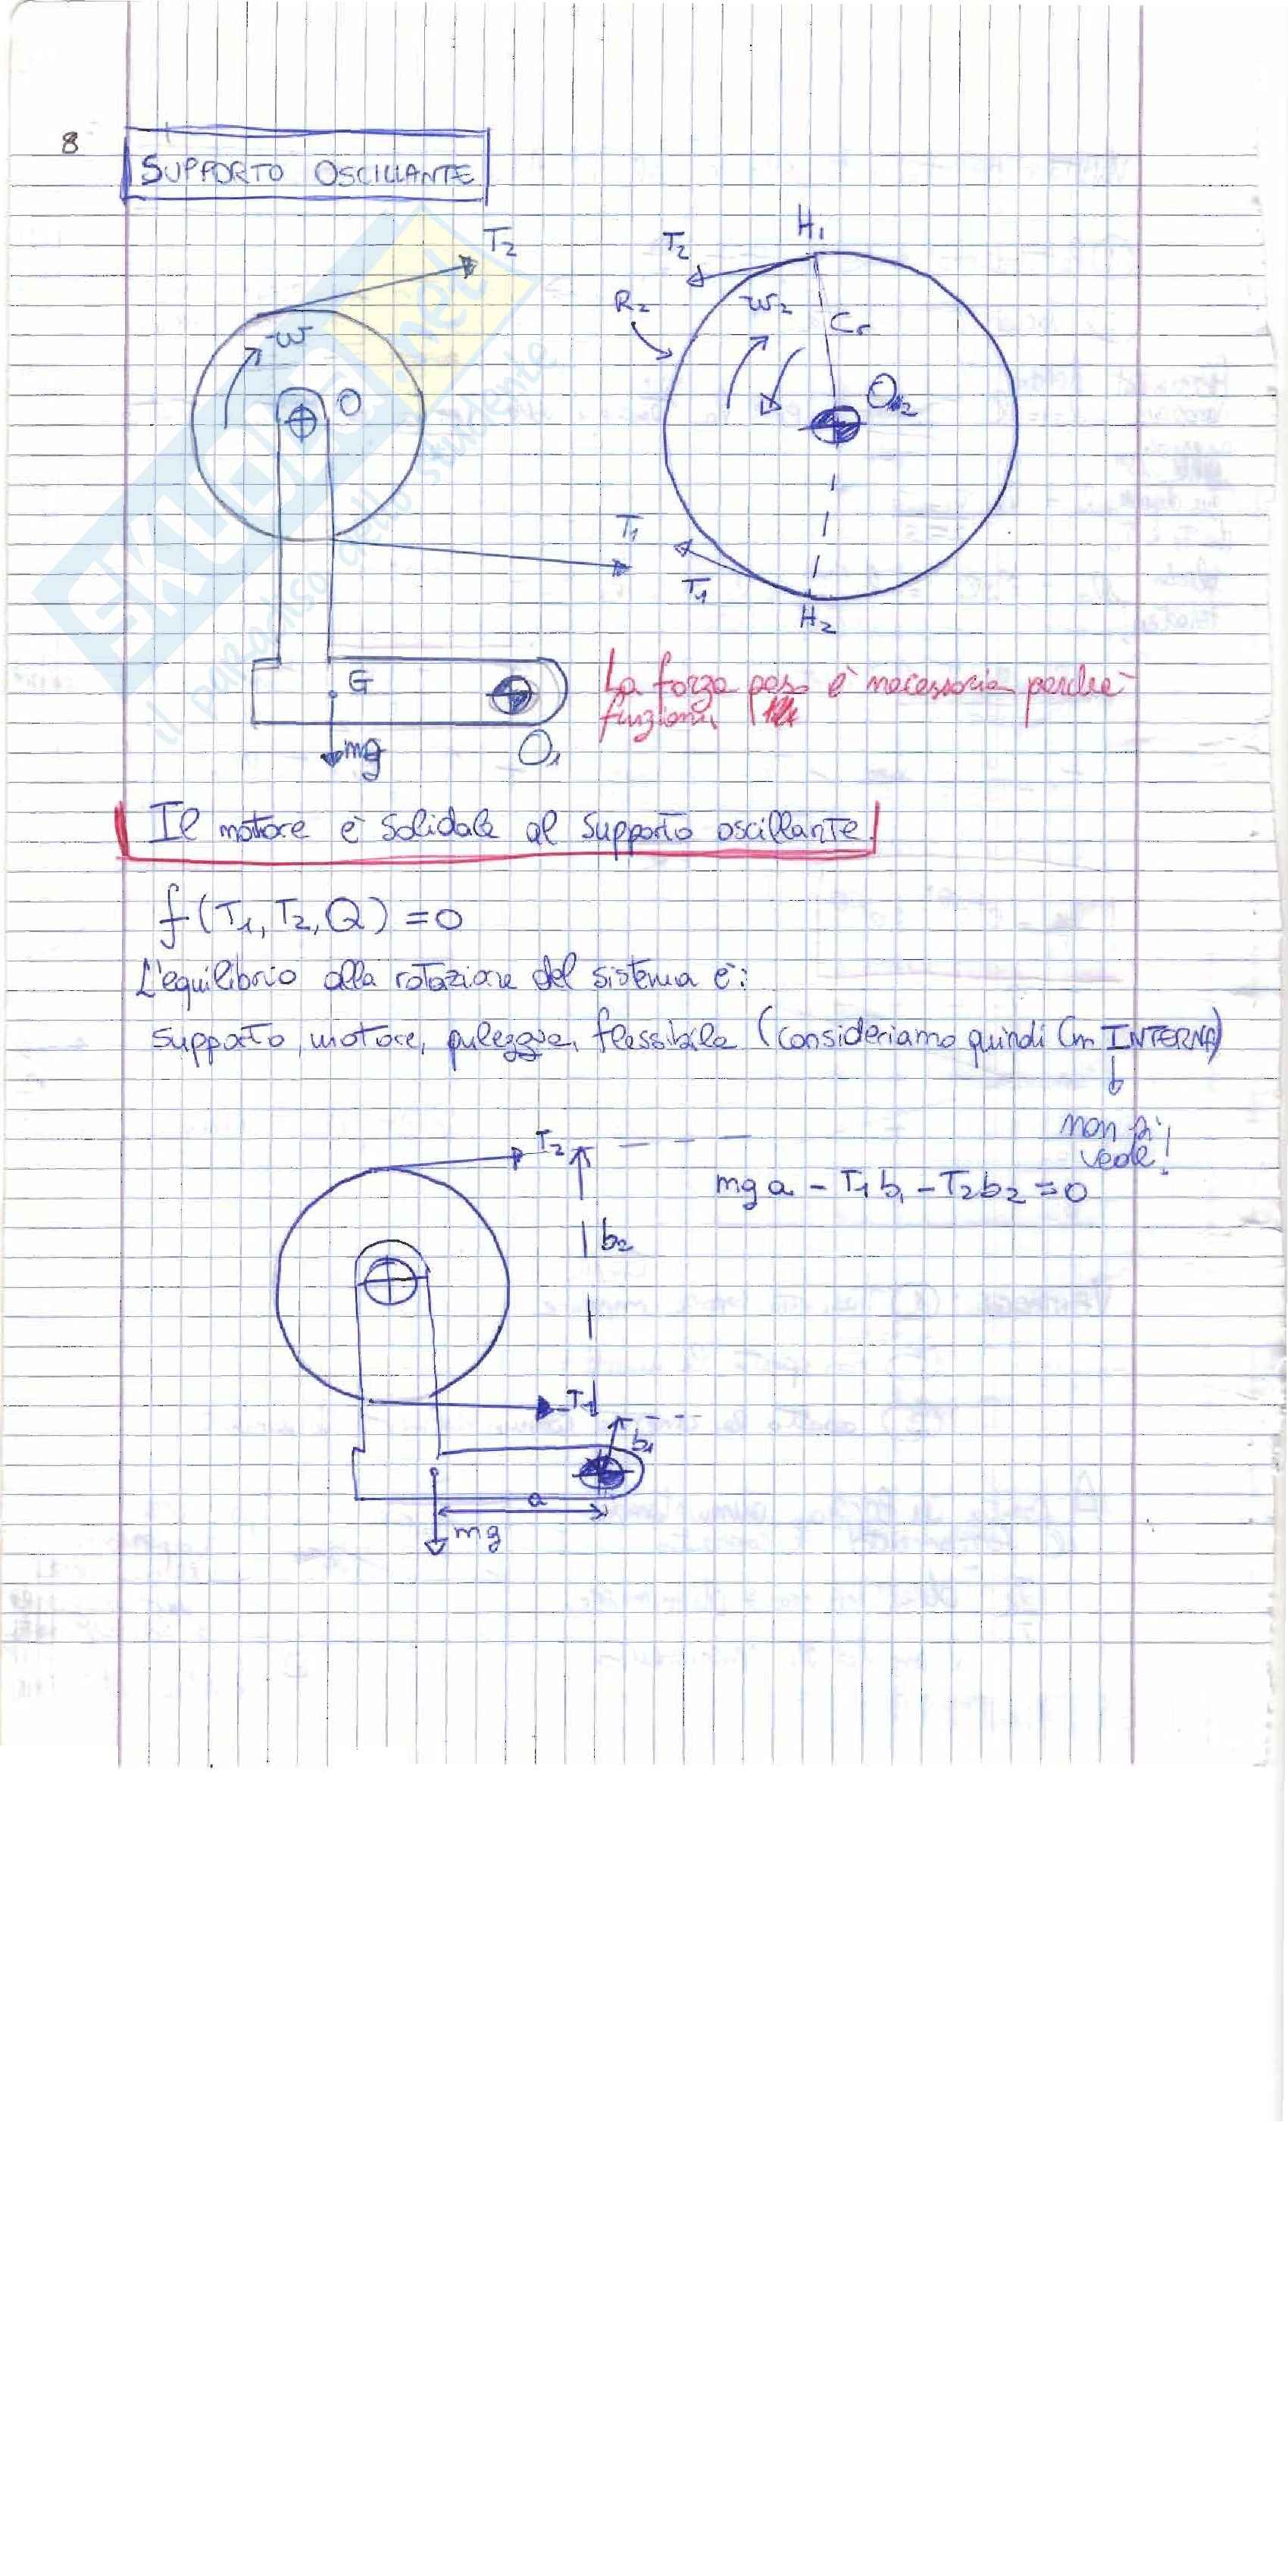 8
SUPPORTO OSCILLANTE
T2
H1
T2
R2
ω
ω2
Cr
O
O2
T1
T1
H2
G
mg
O1
La forza peso è necessaria perché
funzioni
Il motore è solidale al supporto oscillante.
f(T1, T2, Q) = 0
L'equilibrio alla rotazione del sistema è:
supporto, motore, puleggia, flessibile (consideriamo quindi Cm INTERNA)
non si
vede!
T2
mg a - T1 b1 - T2 b2 = 0
b2
T1
b1
a
mg
SKUOLA.net
il paradiso dello studente